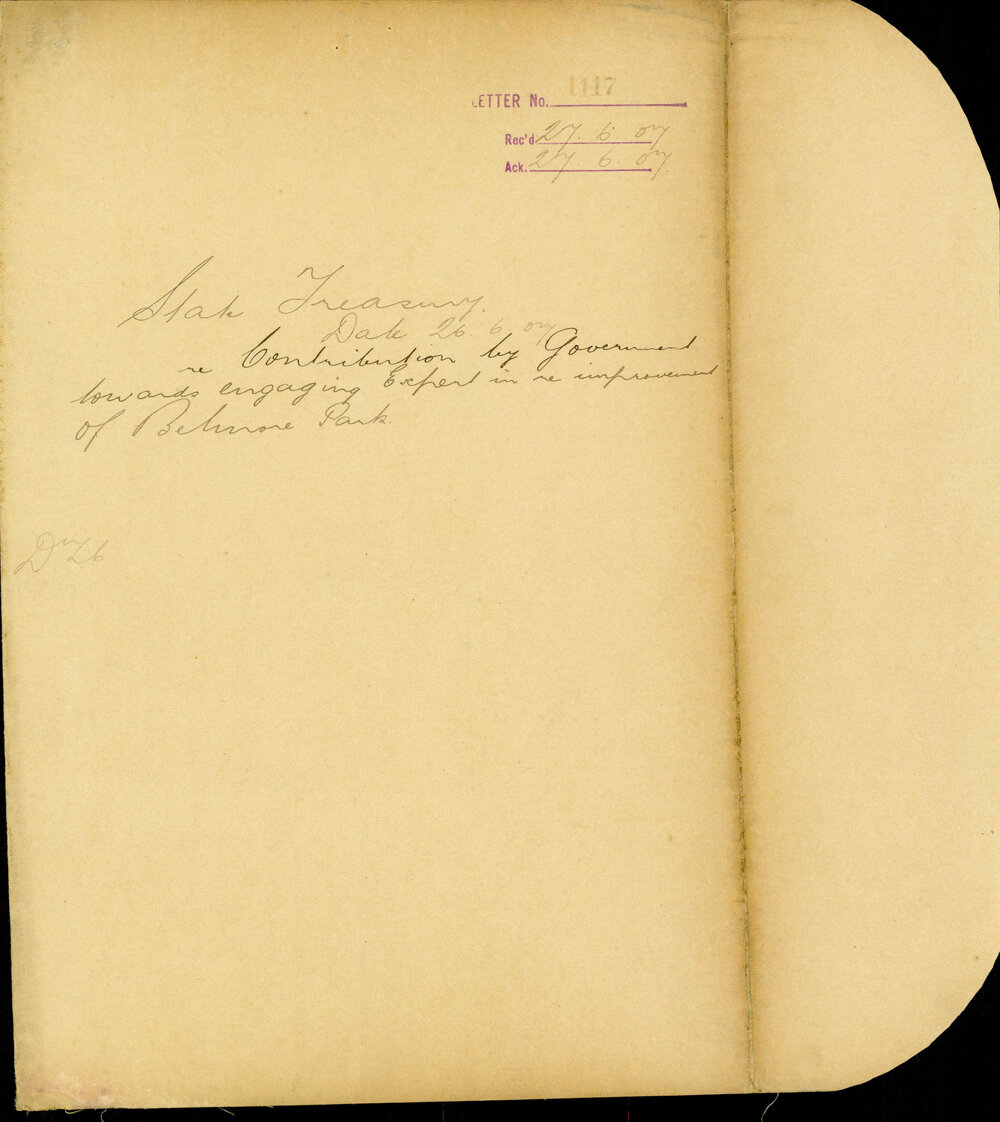 LETTER No. 1117
Rec'd 27. 6. 07
Ack. 27. 6. 07
State Treasury.
Date 26. 6. 07
re Contribution by Government
towards engaging Expert in re improvement
of Belmore Park.